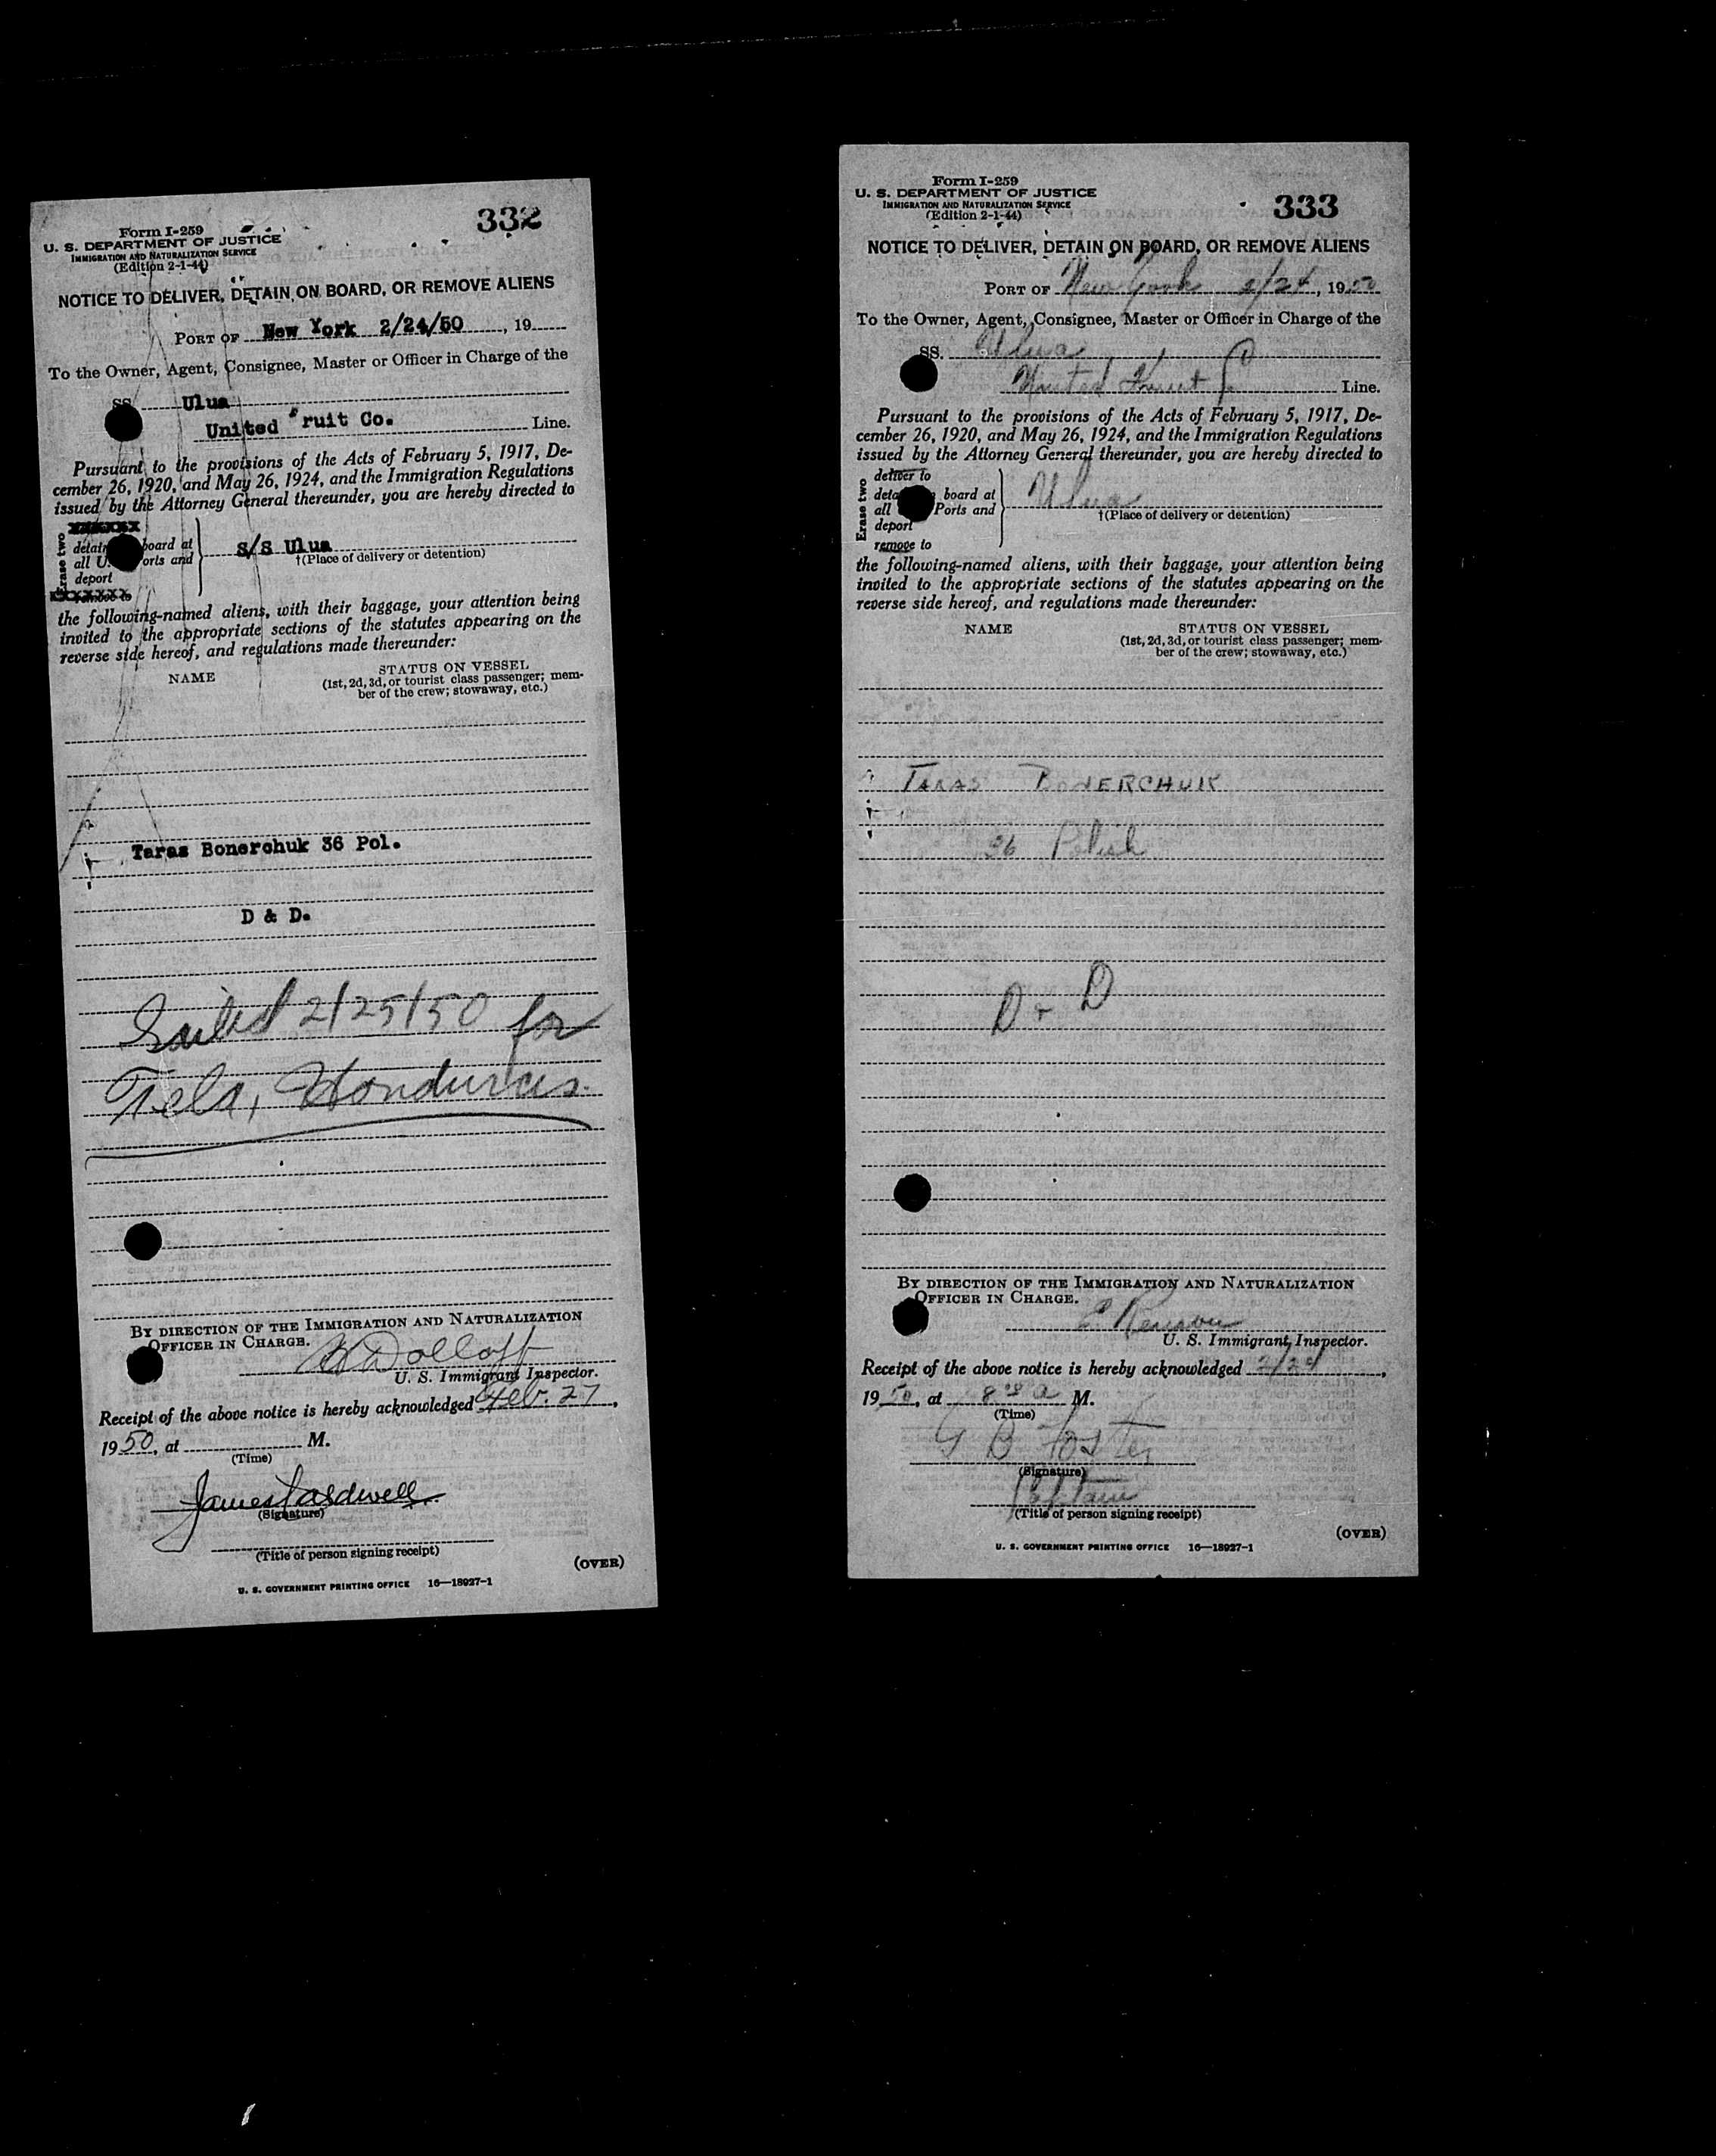 332
Form I-259
U. S. DEPARTMENT OF JUSTICE
IMMIGRATION AND NATURALIZATION SERVICE
(Edition 2-1-44)
NOTICE TO DELIVER, DETAIN ON BOARD, OR REMOVE ALIENS
PORT OF New York 2/24/50, 19
To the Owner, Agent, Consignee, Master or Officer in Charge of the
SS. Ulua
United Fruit Co. Line.
Pursuant to the provisions of the Acts of February 5, 1917, De-
cember 26, 1920, and May 26, 1924, and the Immigration Regulations
issued by the Attorney General thereunder, you are hereby directed to
Erase two
detain board at
all U. orts and
deport
remove to
S/S Ulua
†(Place of delivery or detention)
the following-named aliens, with their baggage, your attention being
invited to the appropriate sections of the statutes appearing on the
reverse side hereof, and regulations made thereunder:
NAME
STATUS ON VESSEL
(1st, 2d, 3d, or tourist class passenger; mem-
ber of the crew; stowaway, etc.)
Taras Bonerchuk 36 Pol.
D & D.
Sailed 2/25/50 for
Tela, Honduras.
BY DIRECTION OF THE IMMIGRATION AND NATURALIZATION
OFFICER IN CHARGE.
Dolloff
U. S. Immigrant Inspector.
Receipt of the above notice is hereby acknowledged Feb. 27,
1950, at M.
(Time)
James Cardwell
(Signature)
(Title of person signing receipt)
(OVER)
U. S. GOVERNMENT PRINTING OFFICE 16—18927-1
333
Form I-259
U. S. DEPARTMENT OF JUSTICE
IMMIGRATION AND NATURALIZATION SERVICE
(Edition 2-1-44)
NOTICE TO DELIVER, DETAIN ON BOARD, OR REMOVE ALIENS
PORT OF New York 2/24, 1950
To the Owner, Agent, Consignee, Master or Officer in Charge of the
SS. Ulua
United Fruit C Line.
Pursuant to the provisions of the Acts of February 5, 1917, De-
cember 26, 1920, and May 26, 1924, and the Immigration Regulations
issued by the Attorney General thereunder, you are hereby directed to
Erase two
deliver to
deta board at
all Ports and
deport
remove to
Ulua
†(Place of delivery or detention)
the following-named aliens, with their baggage, your attention being
invited to the appropriate sections of the statutes appearing on the
reverse side hereof, and regulations made thereunder:
NAME
STATUS ON VESSEL
(1st, 2d, 3d, or tourist class passenger; mem-
ber of the crew; stowaway, etc.)
TARAS BONERCHUK
36 Polish
D + D
BY DIRECTION OF THE IMMIGRATION AND NATURALIZATION
OFFICER IN CHARGE.
U. S. Immigrant Inspector.
Receipt of the above notice is hereby acknowledged 2/24,
1950, at 8 a M.
(Time)
G B Foster
(Signature)
Captain
(Title of person signing receipt)
(OVER)
U. S. GOVERNMENT PRINTING OFFICE 16—18927-1